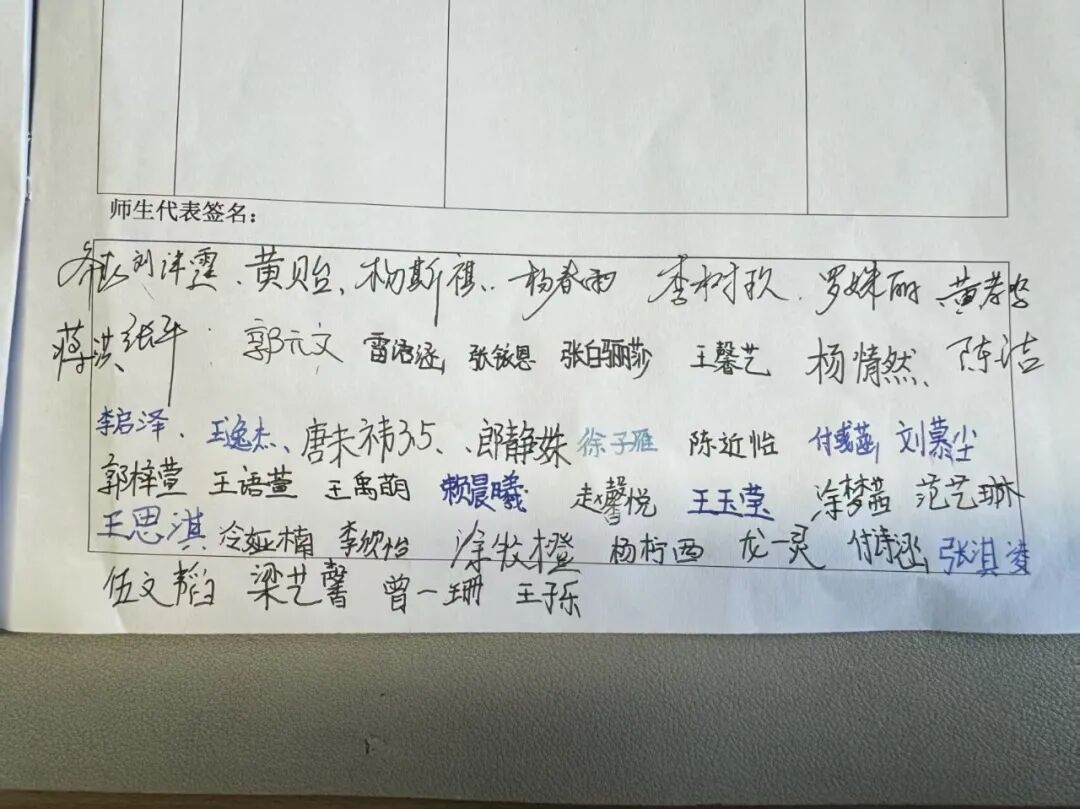 师生代表签名：
刘沣霆、黄贻、杨斯祺、杨春雨 李树玖、罗姝丽
蒋洪 张平 郭元文 雷语涵 张铱恩 张白骊莎 王馨艺 杨情然、陈洁
李启泽、王逸杰、唐未祎35、郎静姝 徐子雁 陈近怡 付彧菡 刘慕尘
郭梓萱 王语萱 王禹萌 赖晨曦 赵馨悦 王玉莹 涂梦茜 范艺琳
王思淇 冷娅楠 李欣怡 涂牧橙 杨柠西 龙一灵 付诗涵 张淇凌
伍文韬 梁艺馨 曾一珊 王子乐